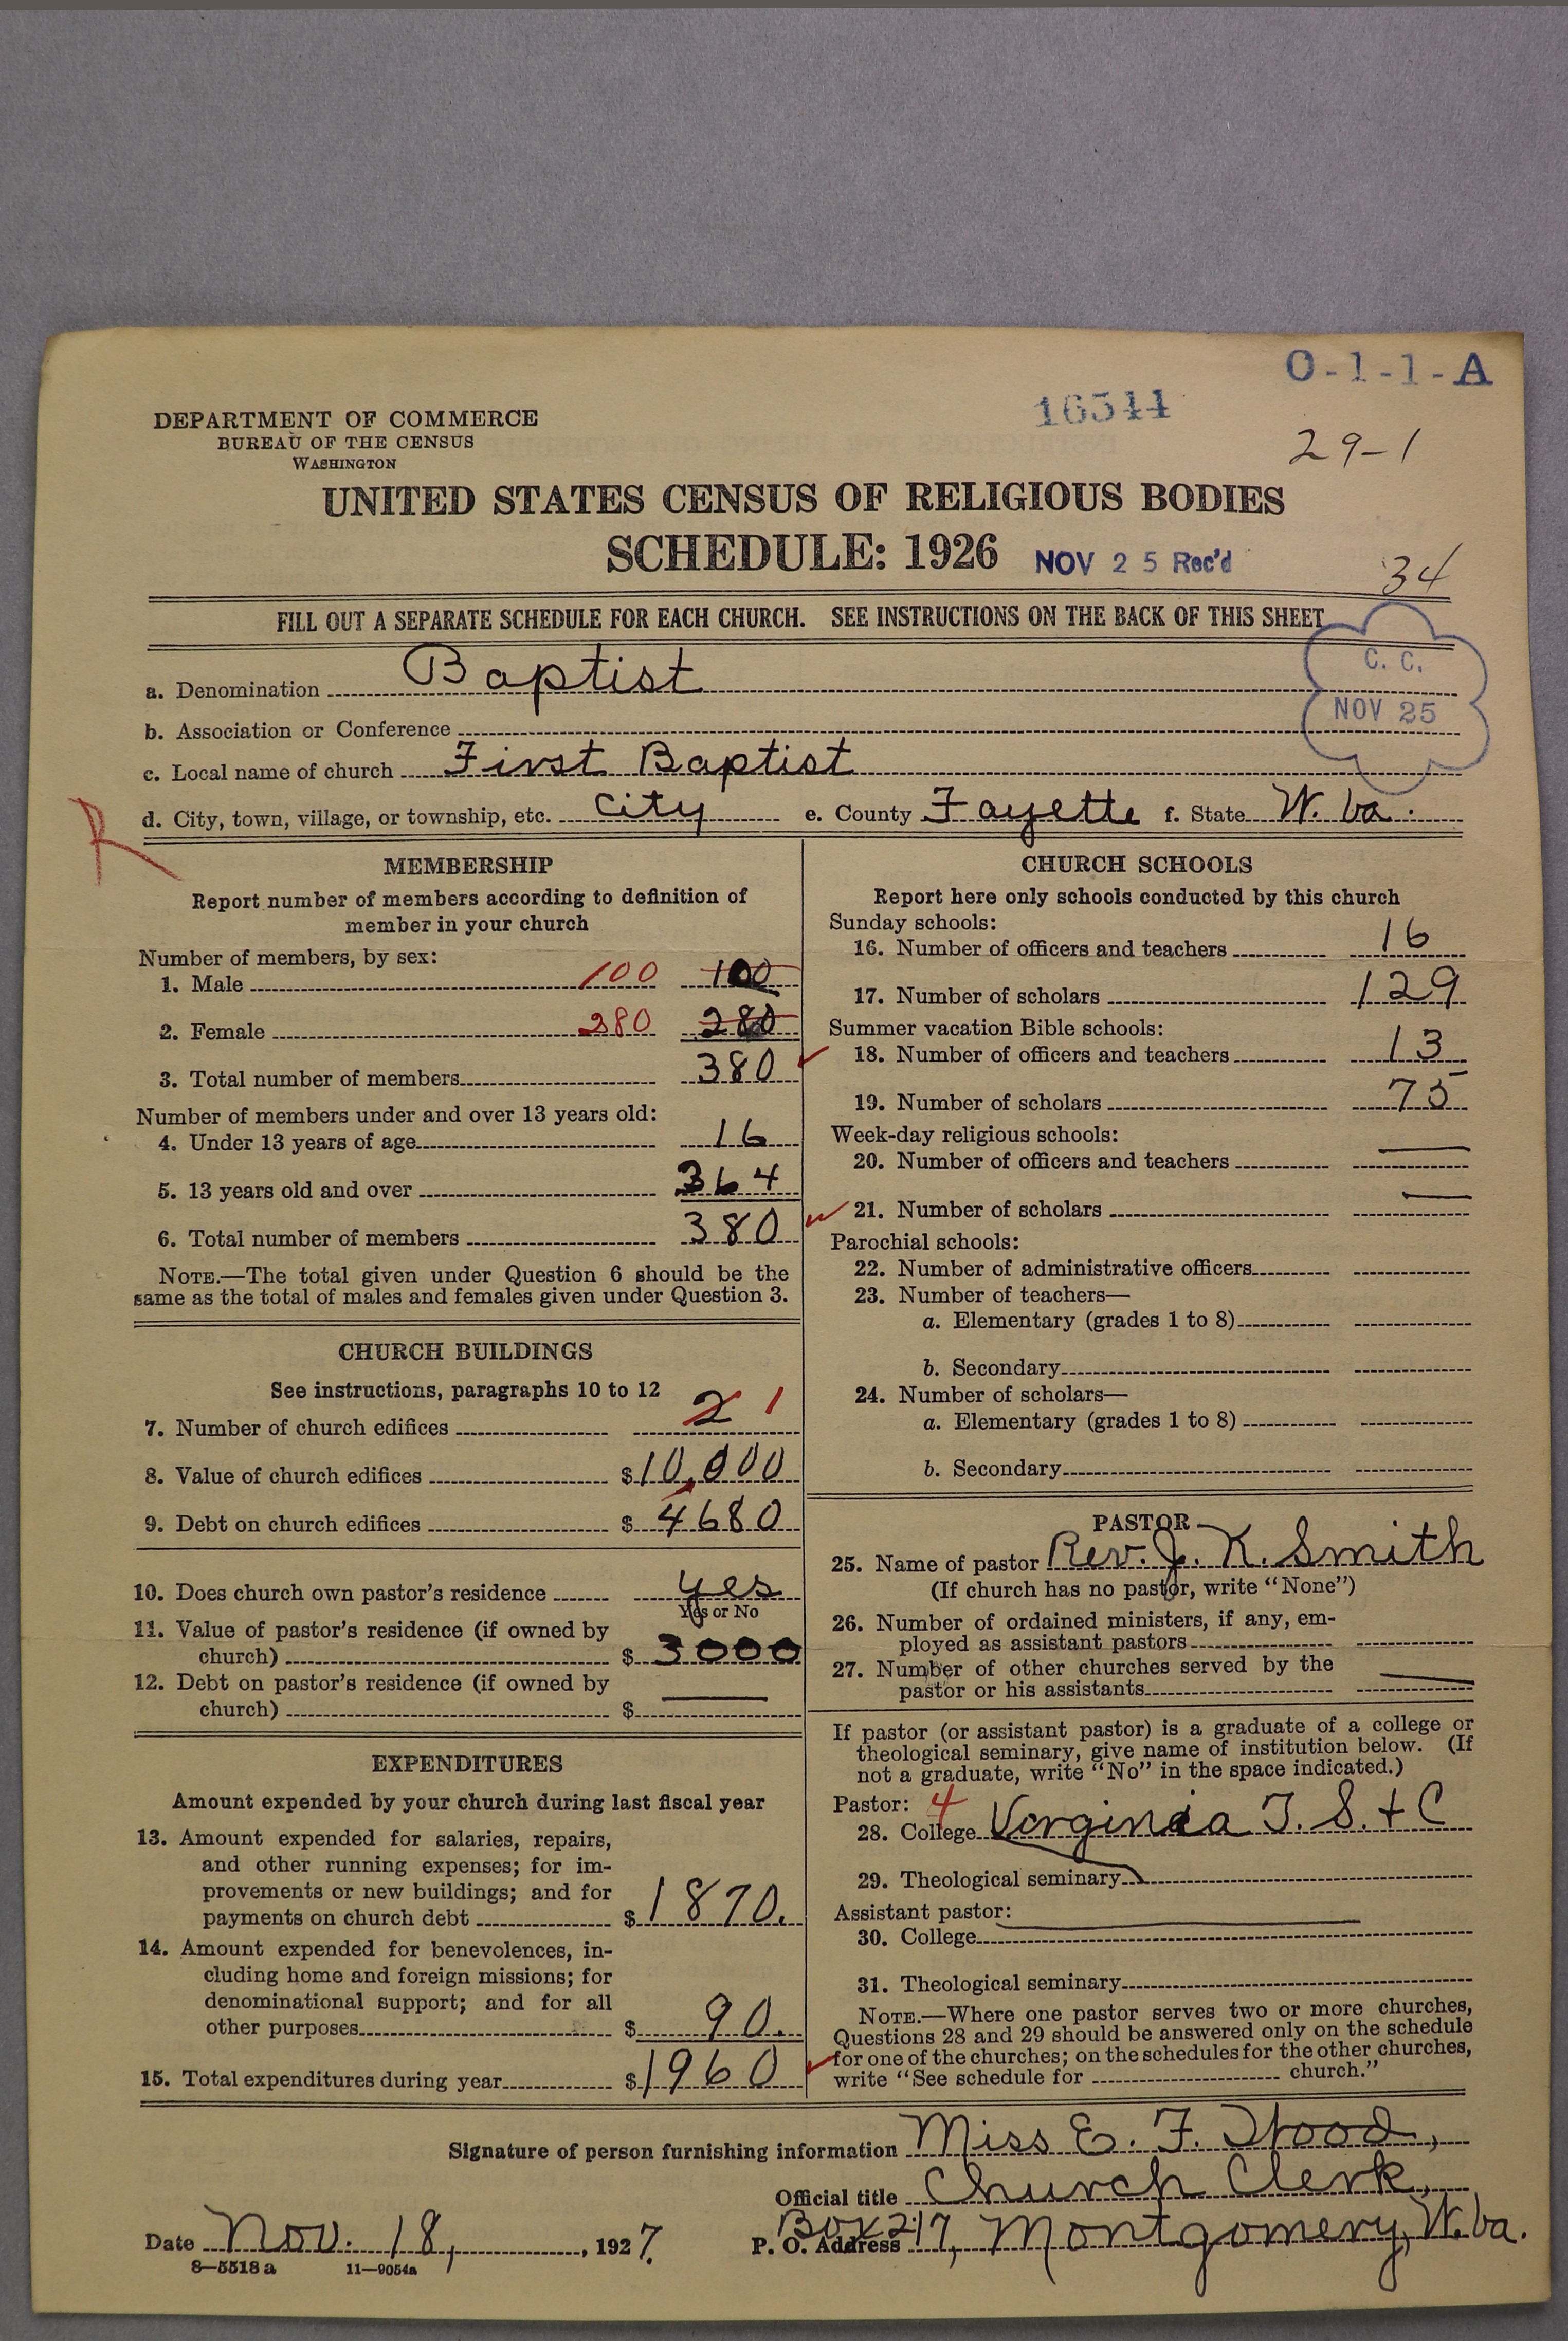 O-1-1-A
16544
DEPARTMENT OF COMMERCE
BUREAU OF THE CENSUS
WASHINGTON
29-1
UNITED STATES CENSUS OF RELIGIOUS BODIES
SCHEDULE: 1926 NOV 25 Rec'd
34
FILL OUT A SEPARATE SCHEDULE FOR EACH CHURCH. SEE INSTRUCTIONS ON THE BACK OF THIS SHEET
C. C.
NOV 25
a. Denomination Baptist
b. Association or Conference
c. Local name of church First Baptist
R
d. City, town, village, or township, etc. City e. County Fayette f. State W. Va.
MEMBERSHIP
Report number of members according to definition of
member in your church
Number of members, by sex:
1. Male 100 100
2. Female 280 280
3. Total number of members 380
Number of members under and over 13 years old:
4. Under 13 years of age 16
5. 13 years old and over 364
6. Total number of members 380
NOTE.—The total given under Question 6 should be the
same as the total of males and females given under Question 3.
CHURCH BUILDINGS
See instructions, paragraphs 10 to 12
7. Number of church edifices 2 1
8. Value of church edifices $10,000
9. Debt on church edifices $4680
10. Does church own pastor's residence yes
Yes or No
11. Value of pastor's residence (if owned by
church) $3000
12. Debt on pastor's residence (if owned by
church) $ —
EXPENDITURES
Amount expended by your church during last fiscal year
13. Amount expended for salaries, repairs,
and other running expenses; for im-
provements or new buildings; and for
payments on church debt $1870.
14. Amount expended for benevolences, in-
cluding home and foreign missions; for
denominational support; and for all
other purposes $90.
15. Total expenditures during year $1960
CHURCH SCHOOLS
Report here only schools conducted by this church
Sunday schools:
16. Number of officers and teachers 16
17. Number of scholars 129
Summer vacation Bible schools:
18. Number of officers and teachers 13
19. Number of scholars 75
Week-day religious schools:
20. Number of officers and teachers —
21. Number of scholars —
Parochial schools:
22. Number of administrative officers
23. Number of teachers—
a. Elementary (grades 1 to 8)
b. Secondary
24. Number of scholars—
a. Elementary (grades 1 to 8)
b. Secondary
PASTOR
25. Name of pastor Rev. J. K. Smith
(If church has no pastor, write "None")
26. Number of ordained ministers, if any, em-
ployed as assistant pastors
27. Number of other churches served by the
pastor or his assistants —
If pastor (or assistant pastor) is a graduate of a college or
theological seminary, give name of institution below. (If
not a graduate, write "No" in the space indicated.)
Pastor: 4
28. College Virginia T. S. + C
29. Theological seminary
Assistant pastor: —
30. College
31. Theological seminary
NOTE.—Where one pastor serves two or more churches,
Questions 28 and 29 should be answered only on the schedule
for one of the churches; on the schedules for the other churches,
write "See schedule for church."
Signature of person furnishing information Miss E. F. Hood,
Official title Church Clerk,
Date Nov. 18, 1927. P. O. Address Box 217, Montgomery, W. Va.
8—5518 a 11—9054a